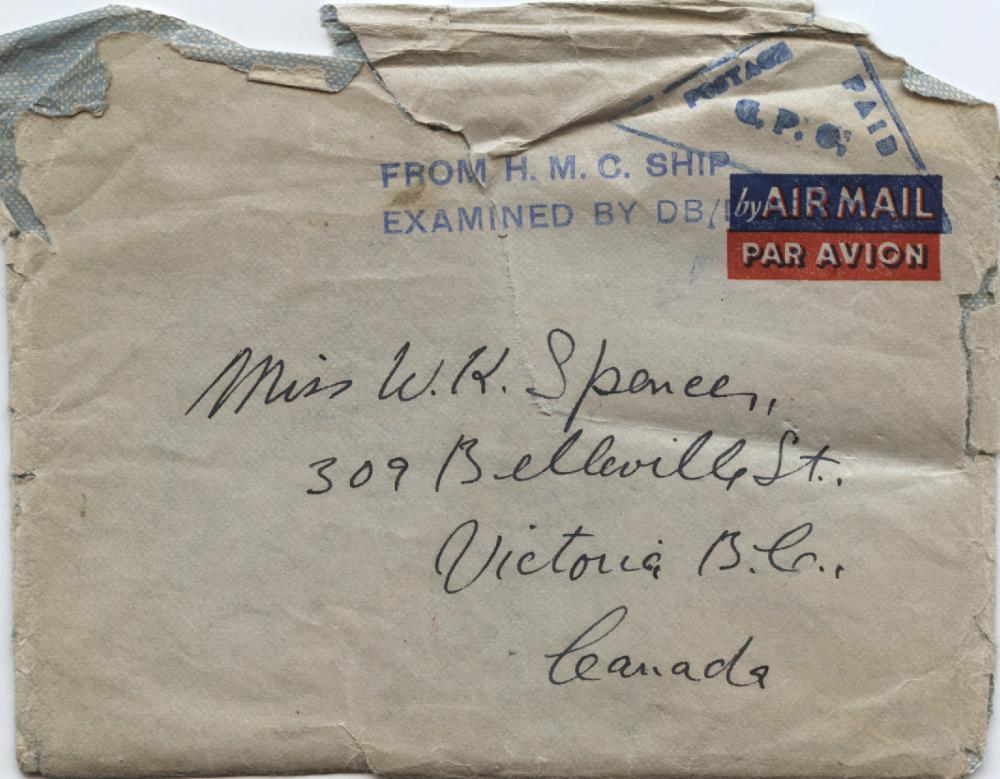 POSTAGE
PAID
G.P.O.
FROM H. M. C. SHIP
EXAMINED BY DB/
by AIR MAIL
PAR AVION
Miss W. K. Spencer,
309 Belleville St.,
Victoria B.C.,
Canada